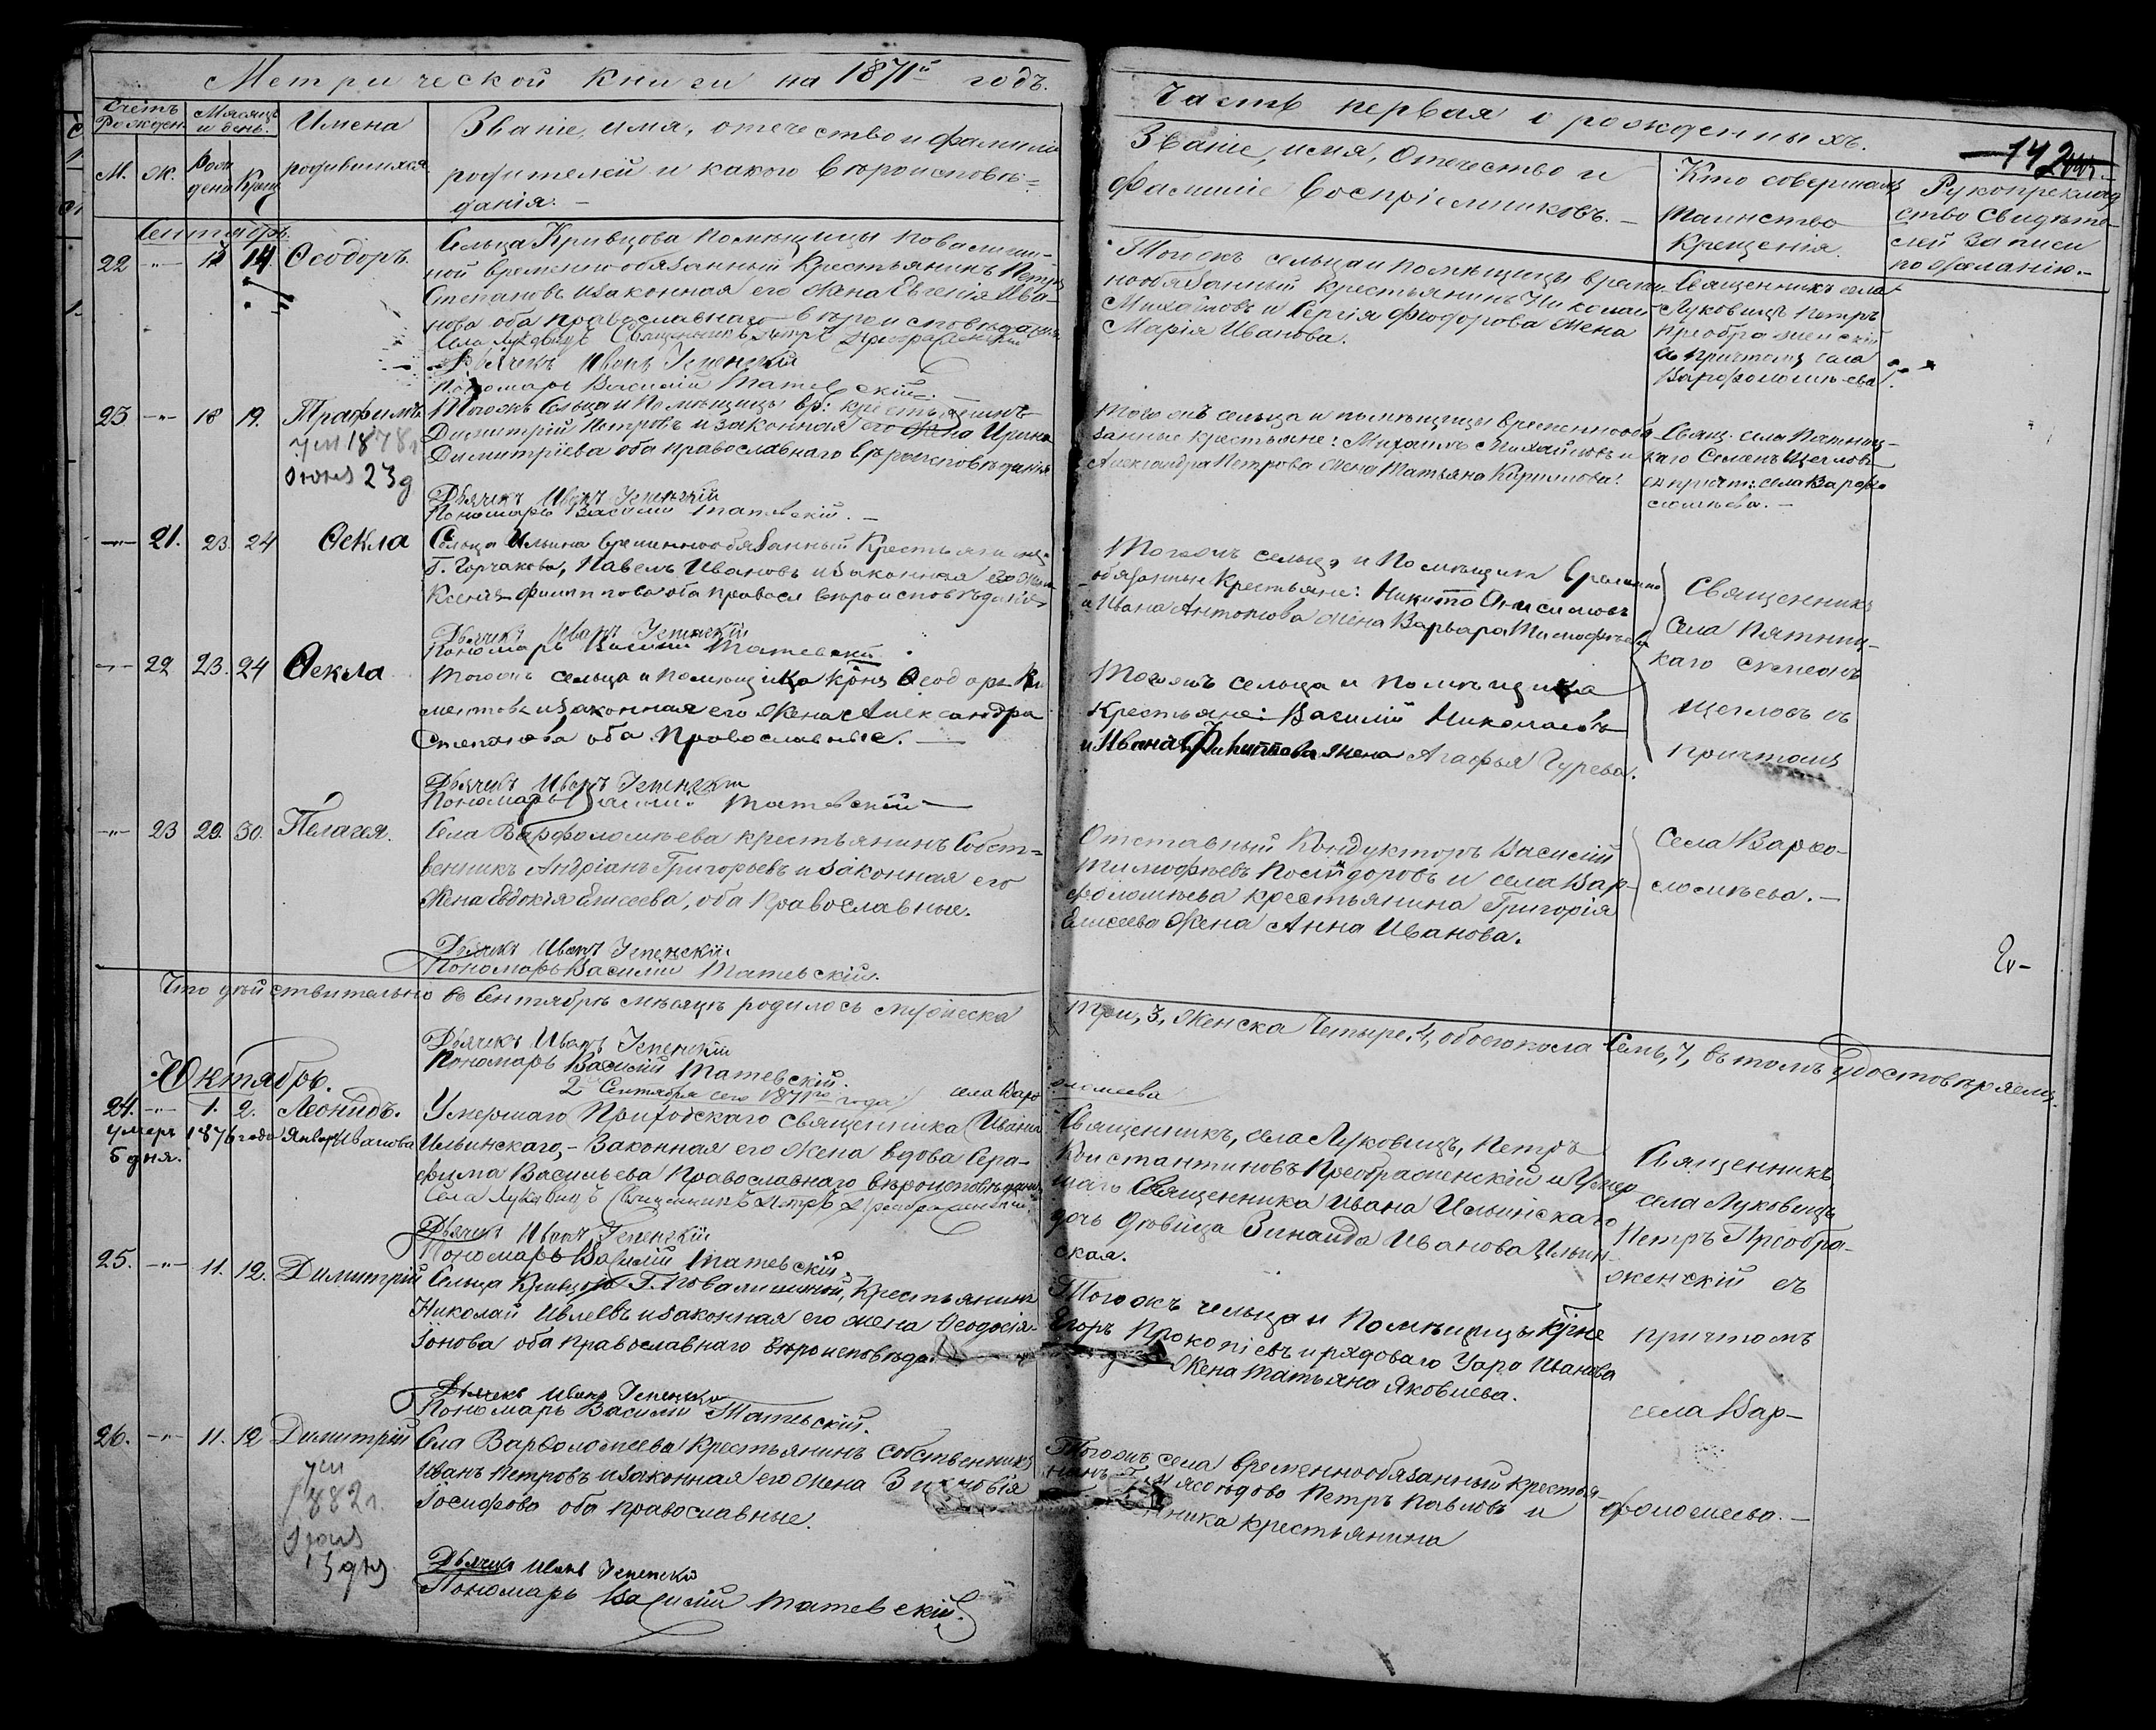 Метрической книги на 1871й годъ.
Счетъ Рожден.
Мѣсяцъ и день.
Имена
родившихся
Званіе, имя, отечество и фамилія
родителей и какого вѣроисповѣ-
данія. –
М. Ж. Рож денія Крещ
Сентябрь.
22 –"– 14. Ѳеодоръ.
Сельца Кривцова помѣщицы Повалиши-
ной временнообязанный Крестьянинъ Петръ
Степановъ и законная его жена Евгенія Ива-
нова оба православнаго вѣроисповѣданія
Села Луковицъ Священникъ Петръ Преображенскій
Дьячекъ Иванъ Успенскій
Пономарь Василій Татевскій. –
23. –"– 18 19. Трофимъ
ум 1878г
23 д
Тогожъ Сельца и Помѣщицы вр: крестьянинъ
Димитрій Петровъ и законная его Жена Ирина
Димитріева оба православнаго вѣроисповѣданія
Дьячекъ Иванъ Успенскій
Пономарь Василій Татевскій. –
–"– 21. 23. 24 Ѳекла
Сельца Ильина временнообязанный Крестьянинъ
Г. Горчакова, Павелъ Ивановъ и законная его жена
Ксенія Филиппова оба правосл вѣроисповѣданія
Дьячекъ Иванъ Успенскій
Пономарь Василій Татевскій.
–"– 22 23. 24 Ѳекла
Тогожъ сельца и помѣщика Крнъ Ѳеодоръ Кли
ментовъ и законная его Жена Александра
Степанова оба Православные. –
Дьячекъ Иванъ Успенскій
Пономарь Василій Татевскій –
–"– 23 29. 30. Пелагея.
Села Варфоломѣева крестьянинъ Собст=
венникъ Андріанъ Григорьевъ и законная его
Жена Евдокія Елисеева, оба Православные.
Дьячекъ Иванъ Успенскій
Пономарь Василій Татевскій.
Что дѣйствительно въ Сентябрѣ мѣсяцѣ родилось мужеска
Дьячекъ Иванъ Успенскій
Пономарь Василій Татевскій.
Октябрь.
2 Сентября сего 1871го года села Варѳ
24. –"– 1. 2. Леонидъ.
умеръ 1876 года Января
5 дня.
Умершаго Приходскаго священника Ивана Иванова
Ильинскаго, – Законная его Жена вдова Сера-
фима Васильева Православнаго вѣроисповѣданія
Села Луковицъ Священникъ Петръ Преображенскій.
Дьячекъ Иванъ Успенскій
Пономарь Василій Татевскій.
25. –"– 11. 12. Димитрій
Сельца Кривцова Г. Повалишиной, Крестьянинъ
Николай Ивлеевъ и законная его жена Ѳеодосія
Іонова оба Православнаго вѣроисповѣда
Дьячекъ Иванъ Успенскій
Пономарь Василій Татевскій.
26. –"– 11. 12 Димитрій
ум
1882г.
Села Варѳоломеева Крестьянинъ собственникъ
Иванъ Петровъ и законная его жена Зиновія
Іосифова оба православные.
Дьячекъ Иванъ Успенскій
Пономарь Василій Татевскій.
Часть первая о рожденныхъ.
142
Званіе, имя, Отечество и
Фамиліе Воспріемниковъ. –
Кто совершалъ
таинство
Крещенія.
Рукоприклад
ство Свидѣте-
лей записи
по желанію. –
Тогожъ сельца и помѣщицы времен
нообязанный крестьянинъ Николай
Михайловъ и Сергія Ѳеодорова Жена
Марія Иванова.
Священникъ села
Луковицъ Петръ
Преображенскій
съ причтомъ села
Варѳоломѣева.
Тогожъ сельца и помѣщицы временнообя
занные крестьяне: Михаилъ Михайловъ и
Александра Петрова Жена Татьяна Кириллова.
Свящ. села Пятниц-
каго Семенъ Щегловъ
съ причт: села Варѳо
ломѣева. –
Тогожъ сельца и Помѣщика временно
обязанные Крестьяне: Никита Анисимовъ
и Ивана Антонова жена Варвара Тимофѣева
Священникъ
Села Пятниц-
каго Семенъ
Щегловъ съ
причтомъ
Тогожъ сельца и помѣщика
Крестьяне: Василій Николаевъ
и Ивана Филиппова Жена Агафья Гурева.
Отставный Кондукторъ Василій
Тимофѣевъ и села Вар-
фоломѣева крестьянина Григорія
Елисеева Жена Анна Иванова.
Села Варѳо-
ломѣева. –
три, 3, Женска Четыре, 4, обоего пола Семь, 7, въ томъ удостовѣряемъ.
оломеева
Священникъ, села Луковицъ, Петръ
Константиновъ Преображенскій и Умер
шаго Священника Ивана Ильинскаго
дочь дѣвица Зинаида Иванова Ильин-
ская.
Священникъ
села Луковицъ
Петръ Преобра-
женскій съ
причтомъ
села Вар-
фоломеева. –
Тогожъ сельца и Помѣщицы Крне
Егоръ Прокопіевъ и рядоваго Уара Иванова
Жена Татьяна Яковлева.
Тогожъ села временнообязанный крестья
нинъ Г. Мясоѣдова Петръ Павловъ и
ника крестьянина